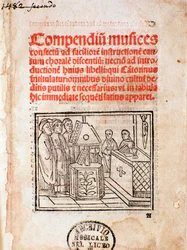 1482 secondo
Compendiũ musices
confectũ ad faciliorẽ instructionẽ can
tum choralẽ discentiũ: necnõ ad intro
ductionẽ huius libelli: qui Cãtorinus
intitulatur: omnibus divino cultui de
ditis putilis et necessarius: ut in tabula
hic immediate sequẽti latius apparet.
ARCHIVIO
MUSICALE
NEL LICEO